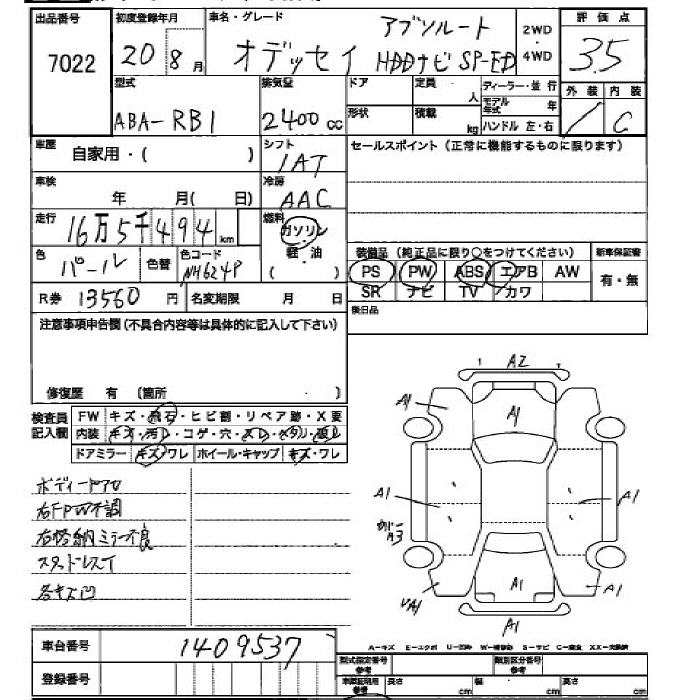 出品番号 初度登録年月 車名・グレード アブソルート 2WD・4WD 評価点
7022 20 8月 オデッセイ HDDナビ SP-ED 3.5
型式 排気量 ドア 定員 人 ディーラー・並行 外装 内装
ABA-RB1 2400cc 形状 積載 kg モデル年式 年 / C
ハンドル 左・右
車歴 自家用・( ) シフト 1AT セールスポイント(正常に機能するものに限ります)
車検 年 月( 日) 冷房 AAC
走行 16万5千494km 燃料 ガソリン・軽油( )
色 パール 色替 色コード NH624P 装備品(純正品に限り○をつけてください) 新車保証書
PS PW ABS エアB AW 有・無
R券 13560円 名変期限 月 日 SR ナビ TV カワ
注意事項申告欄(不具合内容等は具体的に記入して下さい) 後日品
修復歴 有 〔箇所 〕
検査員記入欄 FW キズ・飛石・ヒビ割・リペア跡・X要
内装 キズ・汚レ・コゲ・穴・スレ・ヘタリ・破レ
ドアミラー キズ・ワレ ホイール・キャップ キズ・ワレ
A2
A1 A1
ボディー
右FPW不調
A1 A1
右格納ミラー不良
カバーA3
スタッドレスT
各キズ凹
A1 A1
A1
車台番号 1409537
A-キズ E-エクボ U-凹み W-補修跡 S-サビ C-腐食 XX-交換済
登録番号 型式指定番号 参考 類別区分番号 参考
車庫証明用 参考 長さ cm 幅 cm 高さ cm